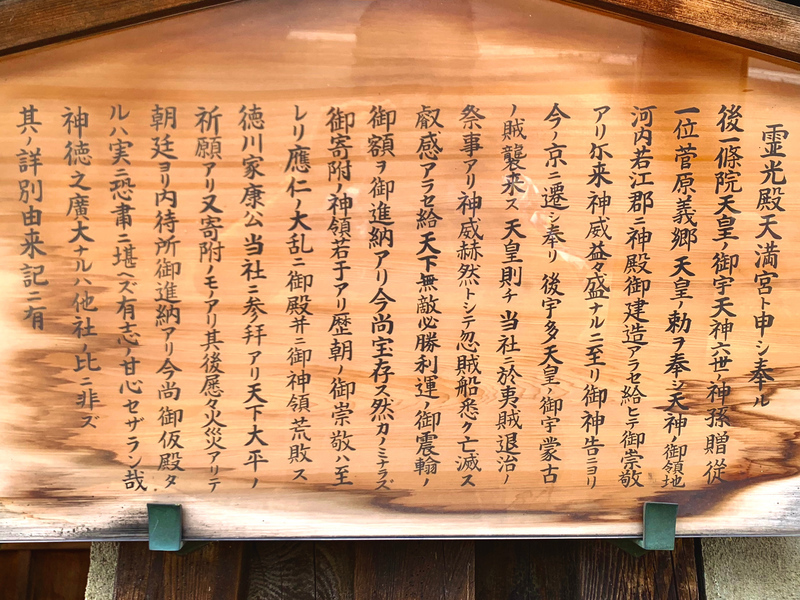 霊光殿天満宮ト申シ奉ル
後一條院天皇ノ御宇天神六世ノ神孫贈従
一位菅原義郷天皇ノ勅ヲ奉シ天神ノ御領地
河内若江郡ニ神殿御建造アラセ給ヒテ御崇敬
アリ尓来神威益々盛ナルニ至リ御神告ニヨリ
今ノ京ニ遷シ奉リ 後宇多天皇ノ御宇蒙古
ノ賊襲来ス 天皇則チ 当社ニ於夷賊退治ノ
祭事アリ神威赫然トシテ忽賊船悉ク亡滅ス
叡感アラセ給 天下無敵必勝利運ノ御震翰ノ
御額ヲ御進納アリ今尚宝存ス然カノミナラズ
御寄附ノ神領若干アリ歴朝ノ御崇敬ハ至
レリ應仁ノ大乱ニ御殿并ニ御神領荒敗ス
徳川家康公当社ニ参拝アリ天下大平ノ
祈願アリ又寄附ノモノアリ其後屡々火災アリテ
朝廷ヨリ内待所御進納アリ今尚御仮殿タ
ルハ実ニ恐粛ニ堪ヘズ有志ノ甘心セザラン哉
神徳之廣大ナルハ他社ノ比ニ非ズ
其ノ詳別由来記ニ有